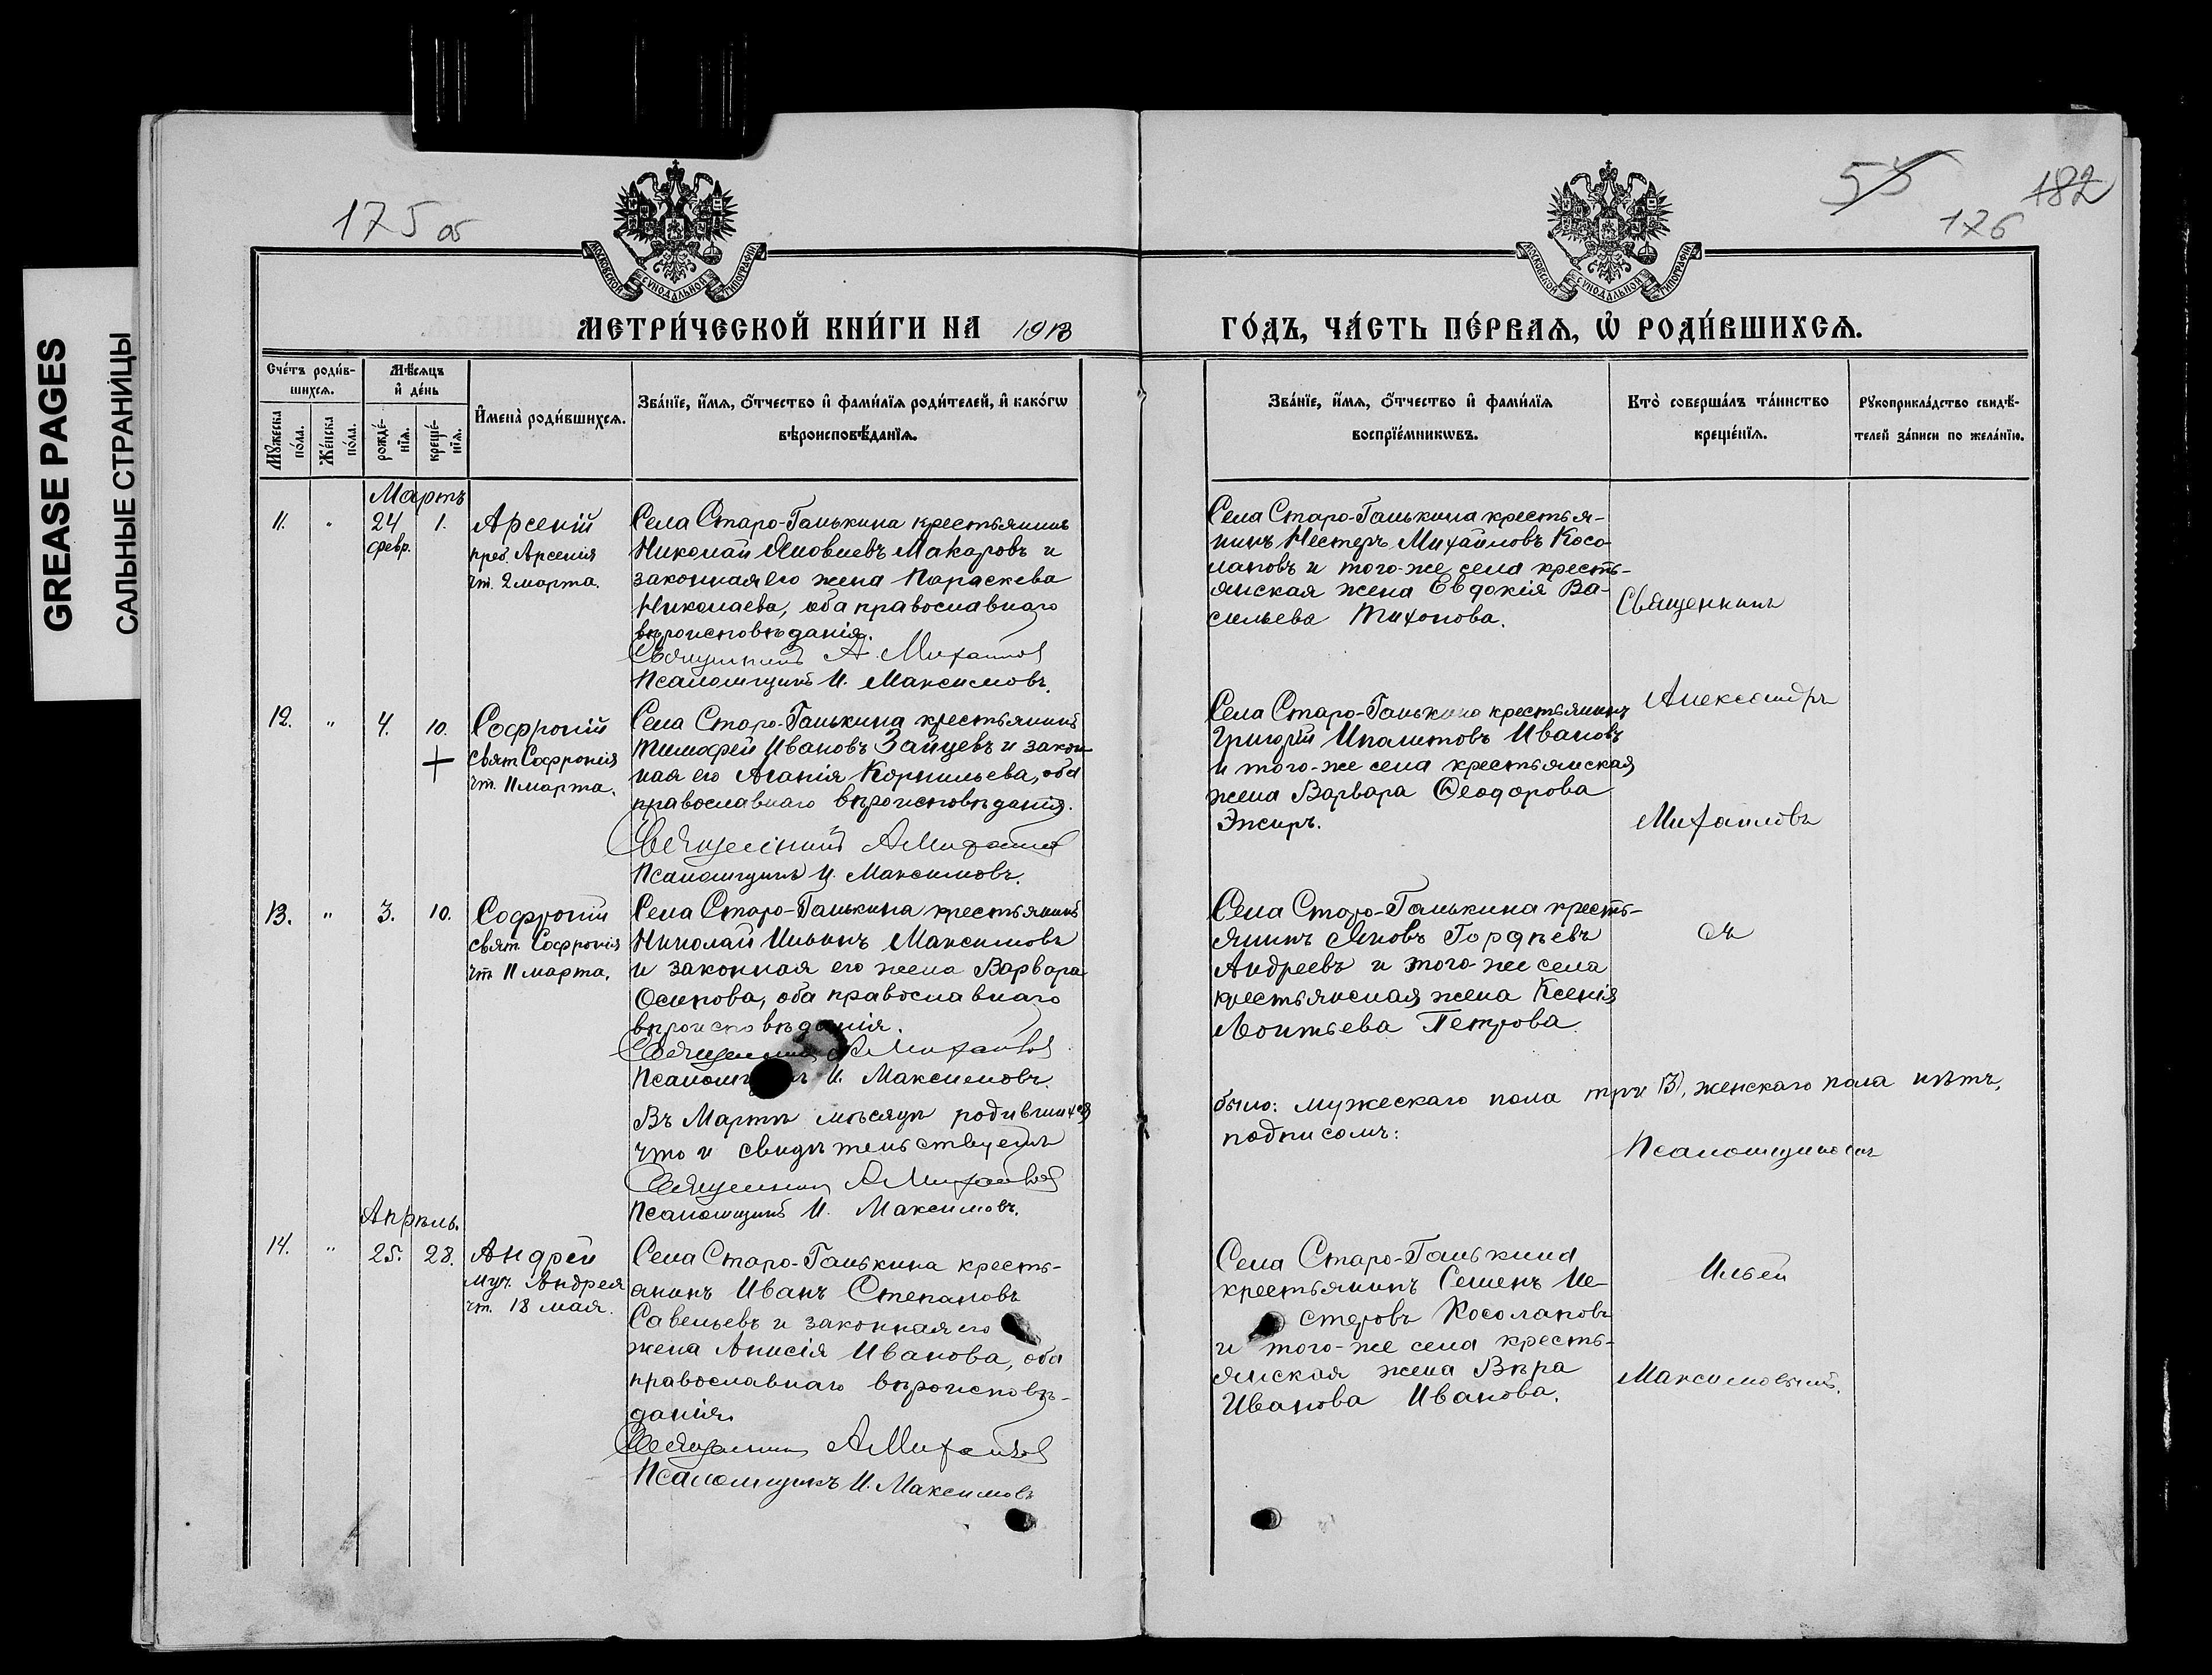 GREASE PAGES
САЛЬНЫЕ СТРАНИЦЫ
175 об
55
182
176
МОСКОВСКОЙ СѴНОДАЛЬНОЙ ТИПОГРАФІИ
МОСКОВСКОЙ СѴНОДАЛЬНОЙ ТИПОГРАФІИ
МЕТРИ́ЧЕСКОЙ КНИ́ГИ НА 1913
ГО́ДЪ, ЧА́СТЬ ПЕ́РВАѦ, Ѡ РОДИ́ВШИХСѦ.
Сче́тъ роди́в-
шихсѧ.
Мꙋжеска по́ла.
Же́нска по́ла.
Мѣ́сѧцъ
и де́нь
рожде́-
нїѧ.
креще́-
нїѧ.
И҆мена̀ роди́вшихсѧ.
Зва́нїе, и҆́мѧ, ѻ҆́тчество и҆ фами́лїѧ роди́телей, и҆ како́гѡ
вѣроисповѣ́данїѧ.
Зва́нїе, и҆́мѧ, ѻ҆́тчество и҆ фами́лїѧ
воспрїе́мникѡвъ.
Кто̀ соверша́лъ та́инство
креще́нїѧ.
Рꙋкоприкла́дство свидѣ́-
телей за́писи по жела́нїю.
Мартъ
11. " 24 февр. 1.
Арсеній
преп. Арсенія
чт. 2 марта.
Села Старо-Ганькина крестьянинъ
Николай Яковлевъ Макаровъ и
законная его жена Параскева
Николаева, оба православнаго
вѣроисповѣданія.
Священникъ А. Михайлов
Псаломщикъ И. Максимовъ.
Села Старо-Ганькина крестья-
нинъ Нестеръ Михайловъ Косо
лаповъ и того-же села кресть-
янская жена Евдокія Ва-
сильева Тихонова.
Священникъ
Александръ
Михайловъ
12. " 4. 10.
Софроній
свят. Софронія
чт. 11 марта.
Села Старо-Ганькина крестьянинъ
Тимофей Ивановъ Зайцевъ и закон
ная его Агапія Корнильева, оба
православнаго вѣроисповѣданія.
Священникъ А Михайлов
Псаломщикъ И. Максимовъ.
Села Старо-Ганькина крестьянинъ
Григорій Ипалитовъ Ивановъ
и того-же села крестьянская
жена Варвара Ѳеодорова
13. " 3. 10.
Софроній
свят. Софронія
чт. 11 марта.
Села Старо-Ганькина крестьянинъ
Николай Ильинъ Максимовъ
и законная его жена Варвара
Осипова, оба православнаго
вѣроисповѣданія.
Священникъ А Михайлов
Псаломщикъ И. Максимовъ.
Села Старо-Ганькина кресть-
янинъ Яковъ Гордѣевъ
Андреевъ и того-же села
крестьянская жена Ксенія
Леонтьева Петрова.
съ
Въ Мартѣ мѣсяцѣ родившихся
было: мужескаго пола три (3), женскаго пола нѣтъ,
что и свидѣтельствуемъ
подписомъ:
Священникъ А Михайлов
Псаломщикъ И. Максимовъ.
Псаломщикомъ
Ильей
Максимовымъ.
Апрѣль.
14. " 25. 28.
Андрей
муч. Андрея
чт. 18 мая.
Села Старо-Ганькина кресть-
янинъ Иванъ Степановъ
Савельевъ и законная его
жена Анисія Иванова, оба
православнаго вѣроисповѣ-
данія.
Священникъ А Михайлов
Псаломщикъ И. Максимовъ
Села Старо-Ганькина
крестьянинъ Семенъ Не-
стеровъ Косолаповъ
и того-же села кресть-
янская жена Вѣра
Иванова Иванова.